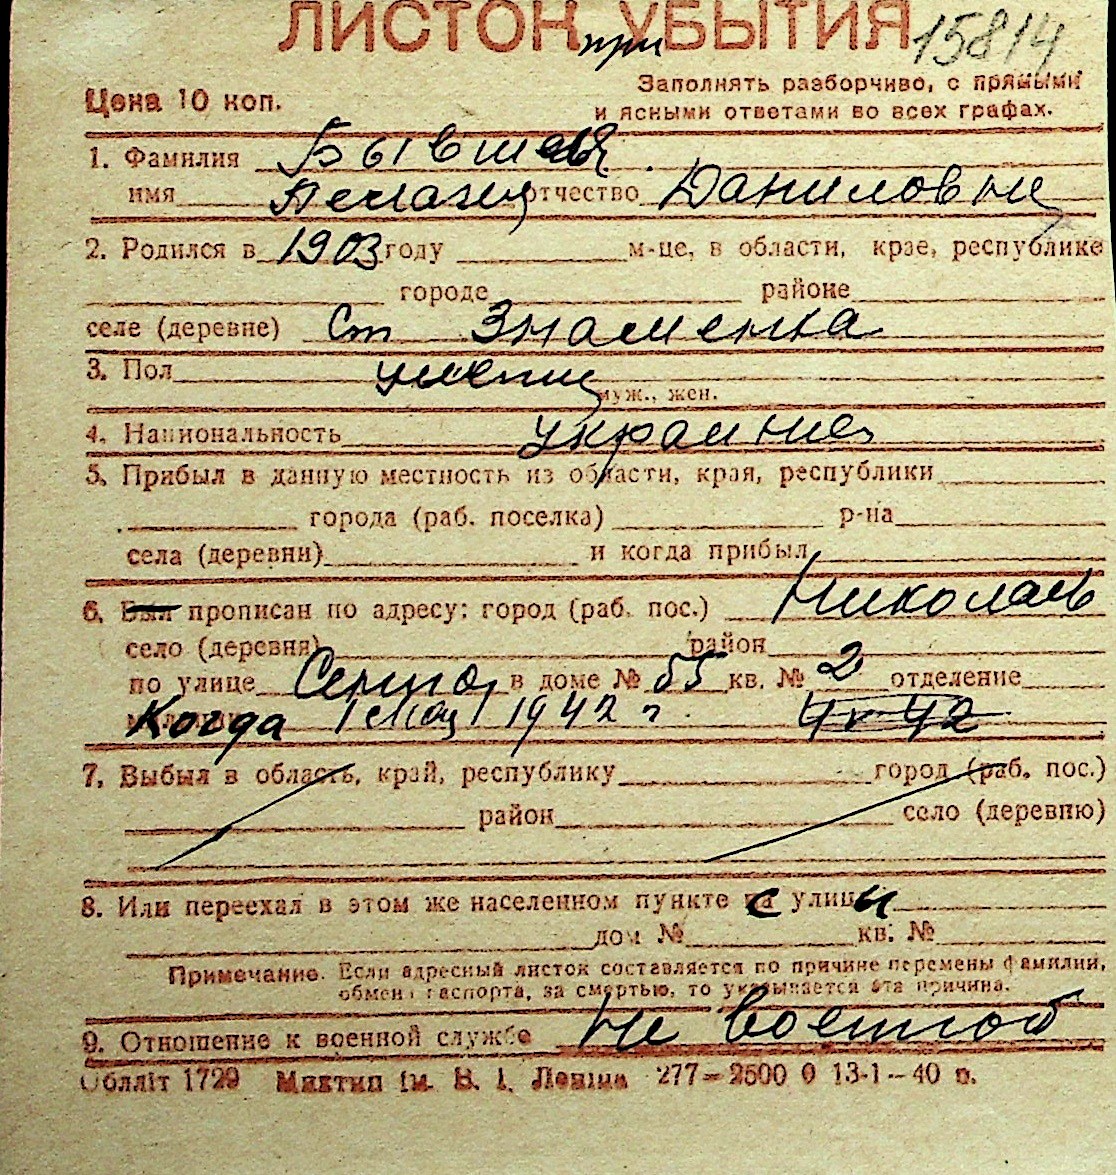 ЛИСТОК УБЫТИЯ 15814
при
Заполнять разборчиво, с прямыми
Цена 10 коп.
и ясными ответами во всех графах.
1. Фамилия Бывшая
имя отчество Даниловна
2. Родился в 1903 году м-це, в области, крае, республике
городе районе
селе (деревне) ст Знаменка
3. Пол
муж., жен.
4. Национальность
5. Прибыл в данную местность из области, края, республики
города (раб. поселка) р-на
села (деревни) и когда прибыл
6. Был прописан по адресу: город (раб. пос.) Николаев
село (деревня) район
по улице в доме № 55 кв. № 2 отделение
Когда 1942 г
7. Выбыл в область, край, республику город (раб. пос.)
район село (деревню)
8. Или переехал в этом же населенном пункте с улицы
дом № кв. №
Примечание. Если адресный листок составляется по причине перемены фамилии,
обмена паспорта, за смертью, то указывается эта причина.
9. Отношение к военной службе Не военноб
Обллiт 1729 Миктип iм. В. I. Ленiна 277—2500 0 13-1-40 п.